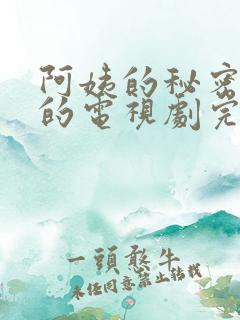 阿姨的秘密
的電視劇完
一頭憨牛
未任同意禁止轉載